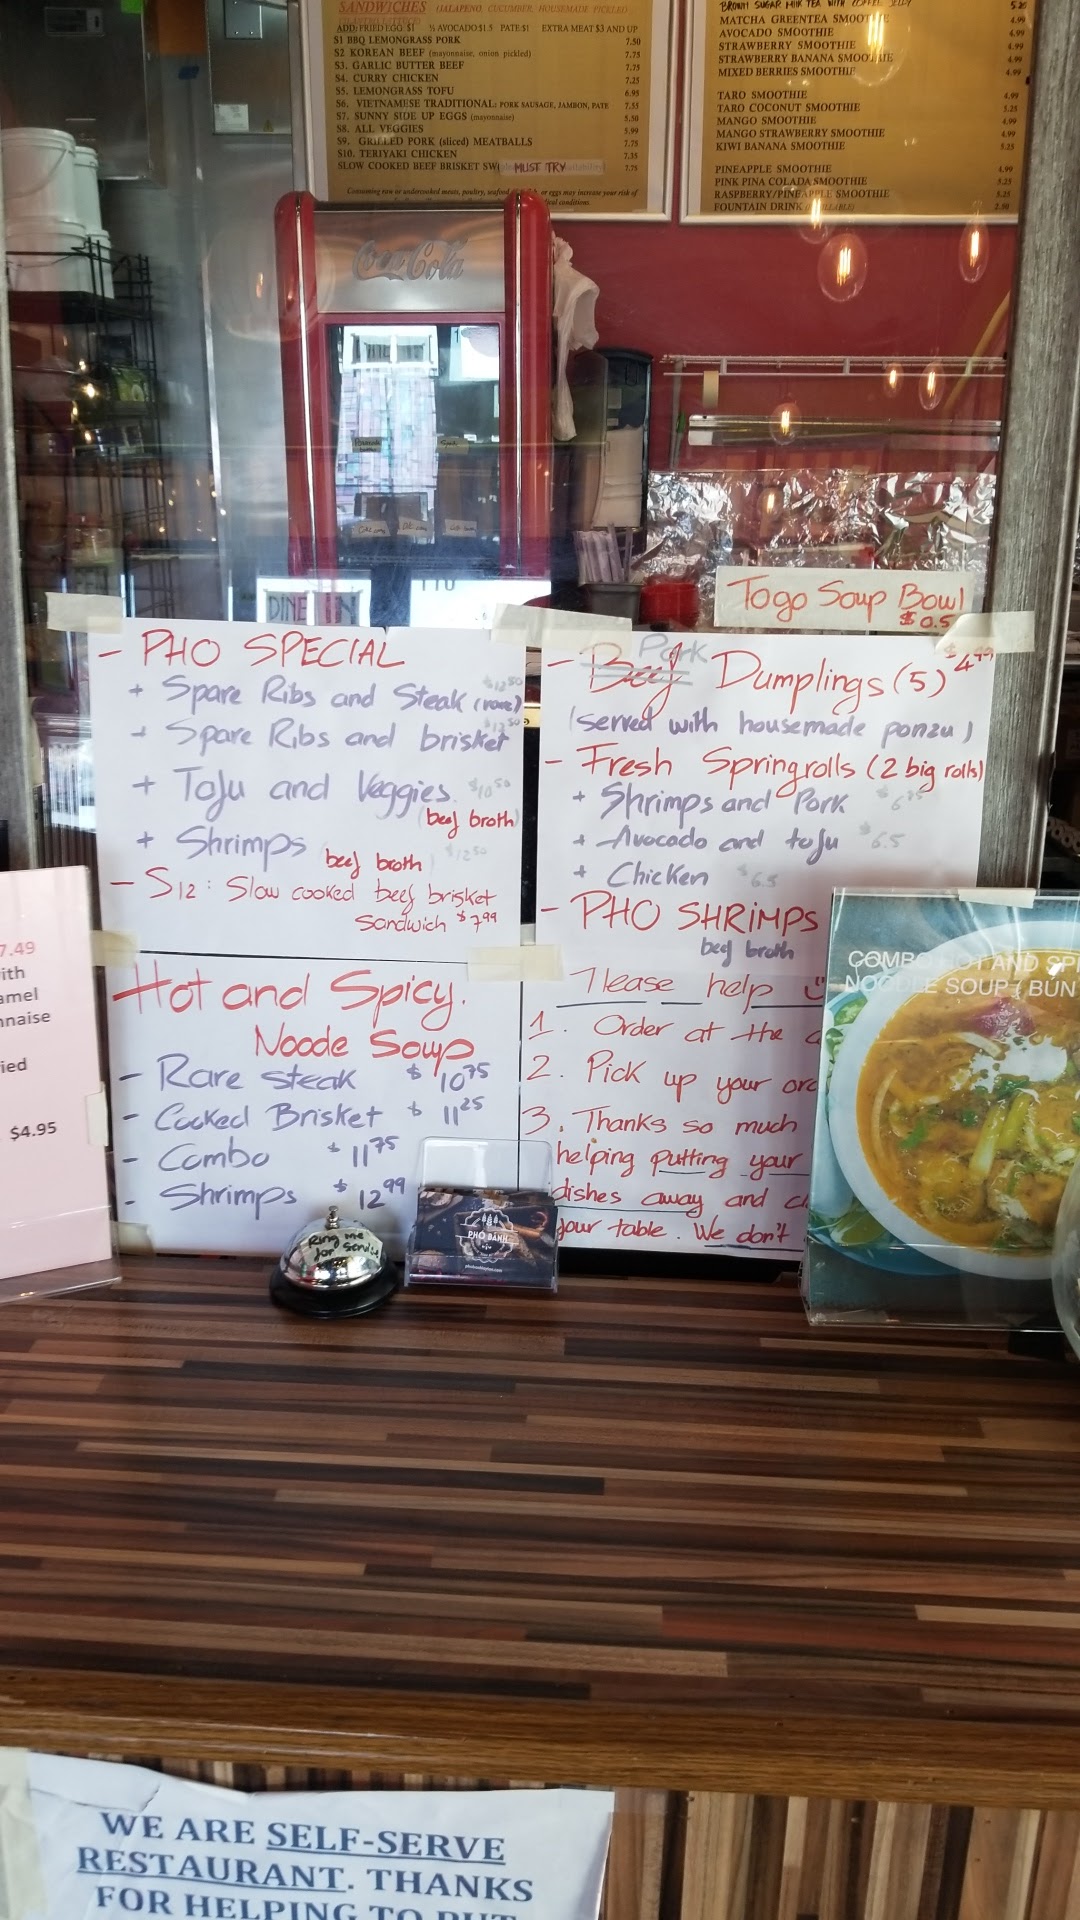 SANDWICHES (JALAPENO, CUCUMBER, HOUSEMADE PICKLED
ADD: FRIED EGG $1 ½ AVOCADO $1.5 PATE $1 EXTRA MEAT $3 AND UP
S1 BBQ LEMONGRASS PORK 7.50
S2 KOREAN BEEF (mayonnaise, onion pickled) 7.75
S3. GARLIC BUTTER BEEF 7.75
S4. CURRY CHICKEN 7.25
S5. LEMONGRASS TOFU 6.95
S6. VIETNAMESE TRADITIONAL: PORK SAUSAGE, JAMBON, PATE 7.55
S7. SUNNY SIDE UP EGGS (mayonnaise) 5.50
S8. ALL VEGGIES 5.99
S9. GRILLED PORK (sliced) MEATBALLS 7.75
S10. TERIYAKI CHICKEN 7.35
SLOW COOKED BEEF BRISKET SW MUST TRY 7.75
Consuming raw or undercooked meats, poultry, seafood or eggs may increase your risk of
conditions.
BROWN SUGAR MILK TEA WITH COFFEE JELLY 5.20
MATCHA GREENTEA SMOOTHIE 4.99
AVOCADO SMOOTHIE 4.99
STRAWBERRY SMOOTHIE 4.99
STRAWBERRY BANANA SMOOTHIE 4.99
MIXED BERRIES SMOOTHIE 4.99
TARO SMOOTHIE 4.99
TARO COCONUT SMOOTHIE 5.25
MANGO SMOOTHIE 4.99
MANGO STRAWBERRY SMOOTHIE 4.99
KIWI BANANA SMOOTHIE 5.25
PINEAPPLE SMOOTHIE 4.99
PINK PINA COLADA SMOOTHIE 5.25
RASPBERRY/PINEAPPLE SMOOTHIE 5.25
FOUNTAIN DRINK 2.50
Coca-Cola
DINE IN
Togo Soup Bowl
$0.5
- PHO SPECIAL
+ Spare Ribs and Steak (rare) $12.50
+ Spare Ribs and brisket $12.50
+ Tofu and Veggies $10.50
(beef broth)
+ Shrimps (beef broth) $12.50
- S12: Slow cooked beef brisket
Sandwich $7.99
- Beef Pork Dumplings (5) $4.99
(served with housemade ponzu)
- Fresh Springrolls (2 big rolls)
+ Shrimps and Pork
+ Avocado and tofu $6.5
+ Chicken $6.5
- PHO SHRIMPS
beef broth
Hot and Spicy.
Noode Soup
- Rare steak $10.75
- Cooked Brisket $11.25
- Combo $11.75
- Shrimps $12.99
Please help
1. Order at the
2. Pick up your
3. Thanks so much
helping putting your
dishes away and
your table. We don't
7.49
$4.95
COMBO HOT AND
NOODLE SOUP (BUN
Ring me
for service
PHO BANH
WE ARE SELF-SERVE
RESTAURANT. THANKS
FOR HELPING TO PUT